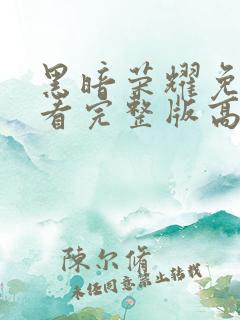 黑暗荣耀免
看完整版高
陳尔脩
未经同意禁止转载